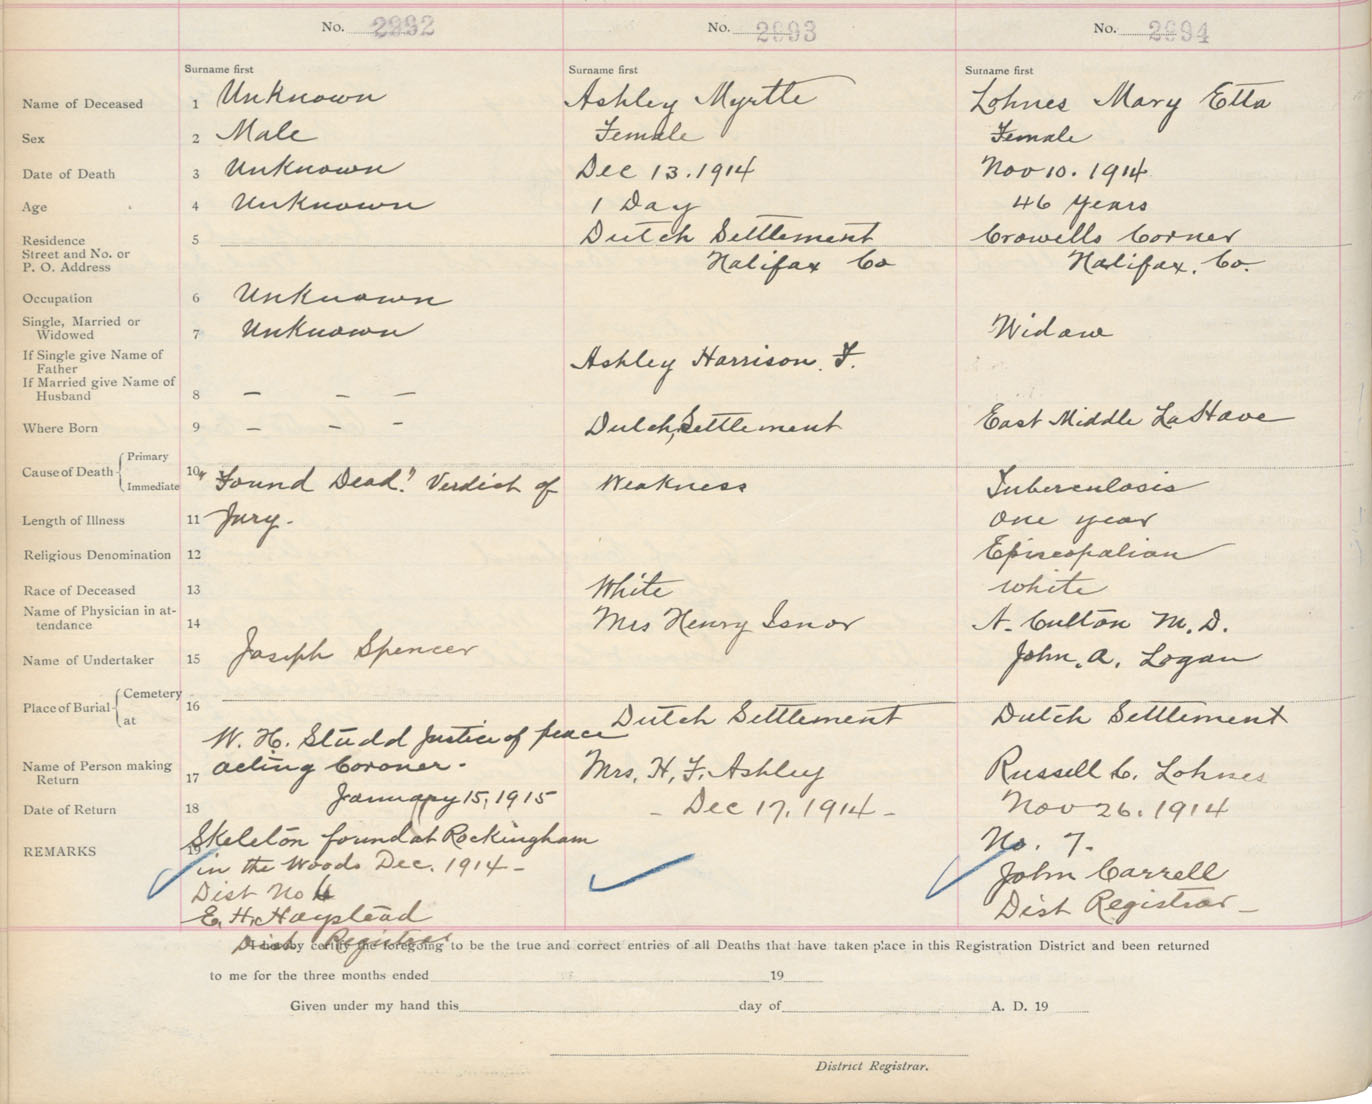 No. 2992 No. 2993 No. 2994
Surname first Surname first Surname first
Name of Deceased 1 Unknown Ashley Myrtle Lohnes Mary Etta
Sex 2 Male Female Female
Date of Death 3 Unknown Dec 13. 1914 Nov 10. 1914
Age 4 Unknown 1 Day 46 years
Residence 5 Dutch Settlement Crowells Corner
Street and No. or
P. O. Address Halifax Co Halifax. Co.
Occupation 6 Unknown
Single, Married or
Widowed 7 Unknown Widow
If Single give Name of
Father Ashley Harrison. F.
If Married give Name of
Husband 8 — — —
Where Born 9 — — — Dutch, Settlement East Middle LaHave
Cause of Death { Primary
Immediate 10 "Found Dead." Verdict of Weakness Tuberculosis
Length of Illness 11 Jury. One year
Religious Denomination 12 Episcopalian
Race of Deceased 13 White White
Name of Physician in at-
tendance 14 Mrs Henry Isnor A. Culton M. D.
Name of Undertaker 15 Joseph Spencer John. A. Logan
Place of Burial { Cemetery
at 16 Dutch Settlement Dutch Settlement
W. H. Studd Justice of peace
Name of Person making
Return 17 acting Coroner. Mrs. H. F. Ashley Russell C. Lohnes
Date of Return 18 January 15, 1915 - Dec 17, 1914 - Nov 26. 1914
REMARKS 19 Skeleton found at Rockingham No. 7.
in the Woods Dec. 1914 - John Carrell
Dist No 4 Dist Registrar -
E. H. Haystead
Dist Registrar
I hereby certify the foregoing to be the true and correct entries of all Deaths that have taken place in this Registration District and been returned
to me for the three months ended 19
Given under my hand this day of A. D. 19
District Registrar.